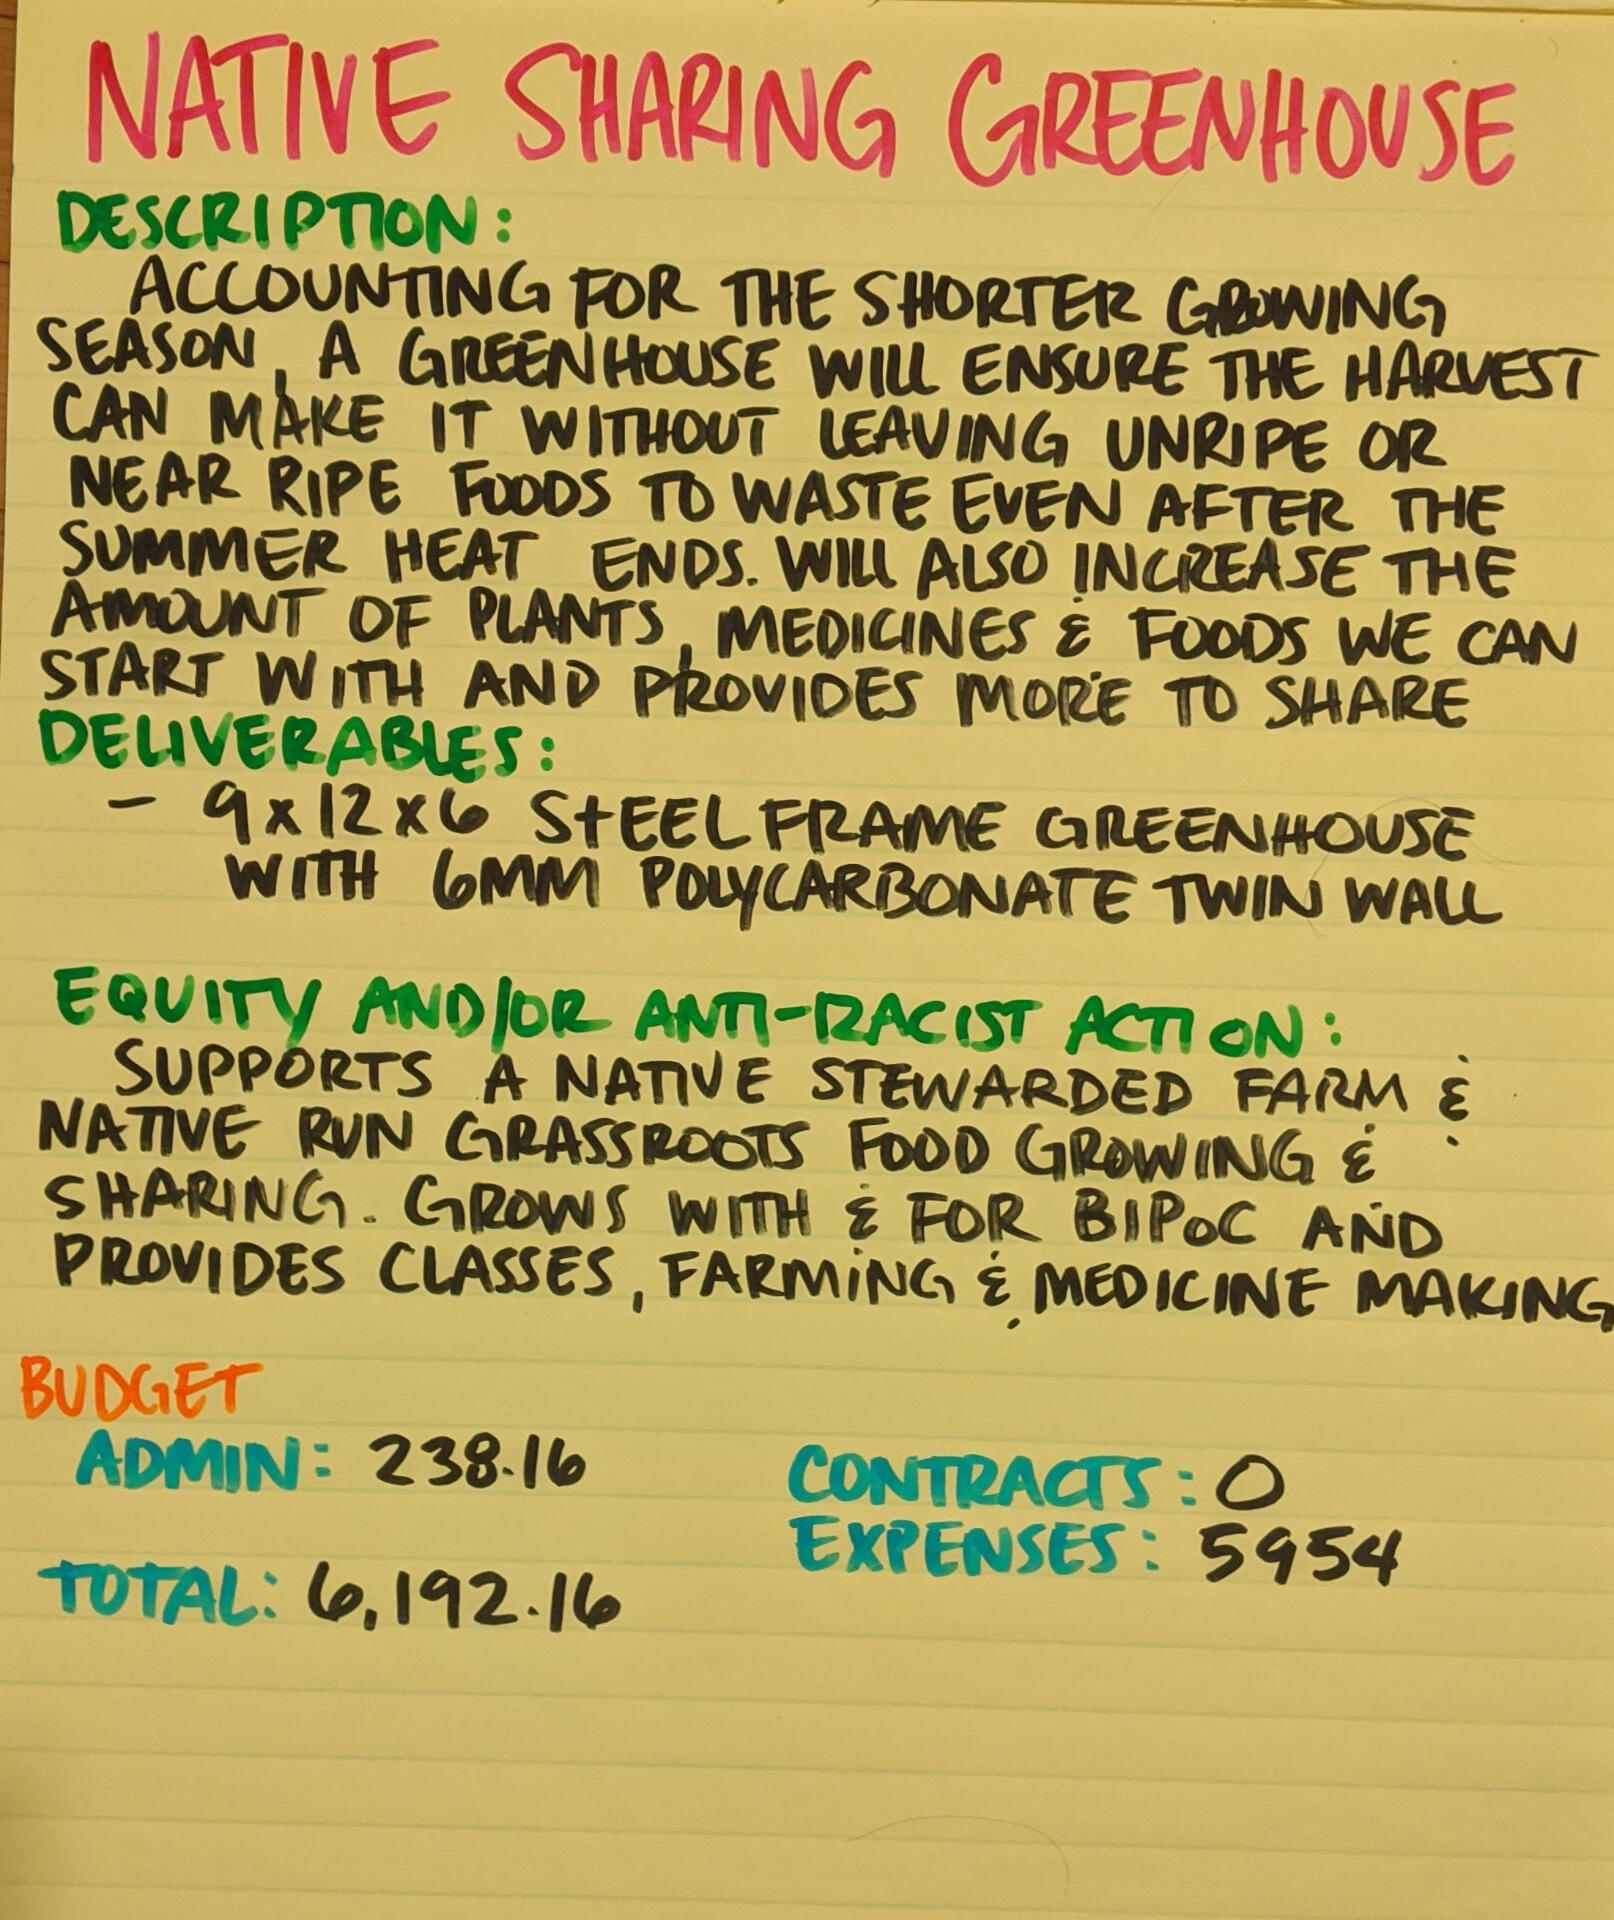 NATIVE SHARING GREENHOUSE
DESCRIPTION:
ACCOUNTING FOR THE SHORTER GROWING
SEASON, A GREENHOUSE WILL ENSURE THE HARVEST
CAN MAKE IT WITHOUT LEAVING UNRIPE OR
NEAR RIPE FOODS TO WASTE EVEN AFTER THE
SUMMER HEAT ENDS. WILL ALSO INCREASE THE
AMOUNT OF PLANTS, MEDICINES & FOODS WE CAN
START WITH AND PROVIDES MORE TO SHARE
DELIVERABLES:
- 9x12x6 STEEL FRAME GREENHOUSE
WITH 6MM POLYCARBONATE TWIN WALL
EQUITY AND/OR ANTI-RACIST ACTION:
SUPPORTS A NATIVE STEWARDED FARM &
NATIVE RUN GRASSROOTS FOOD GROWING &
SHARING. GROWS WITH & FOR BIPOC AND
PROVIDES CLASSES, FARMING & MEDICINE MAKING
BUDGET
ADMIN: 238.16
CONTRACTS: 0
EXPENSES: 5954
TOTAL: 6,192.16